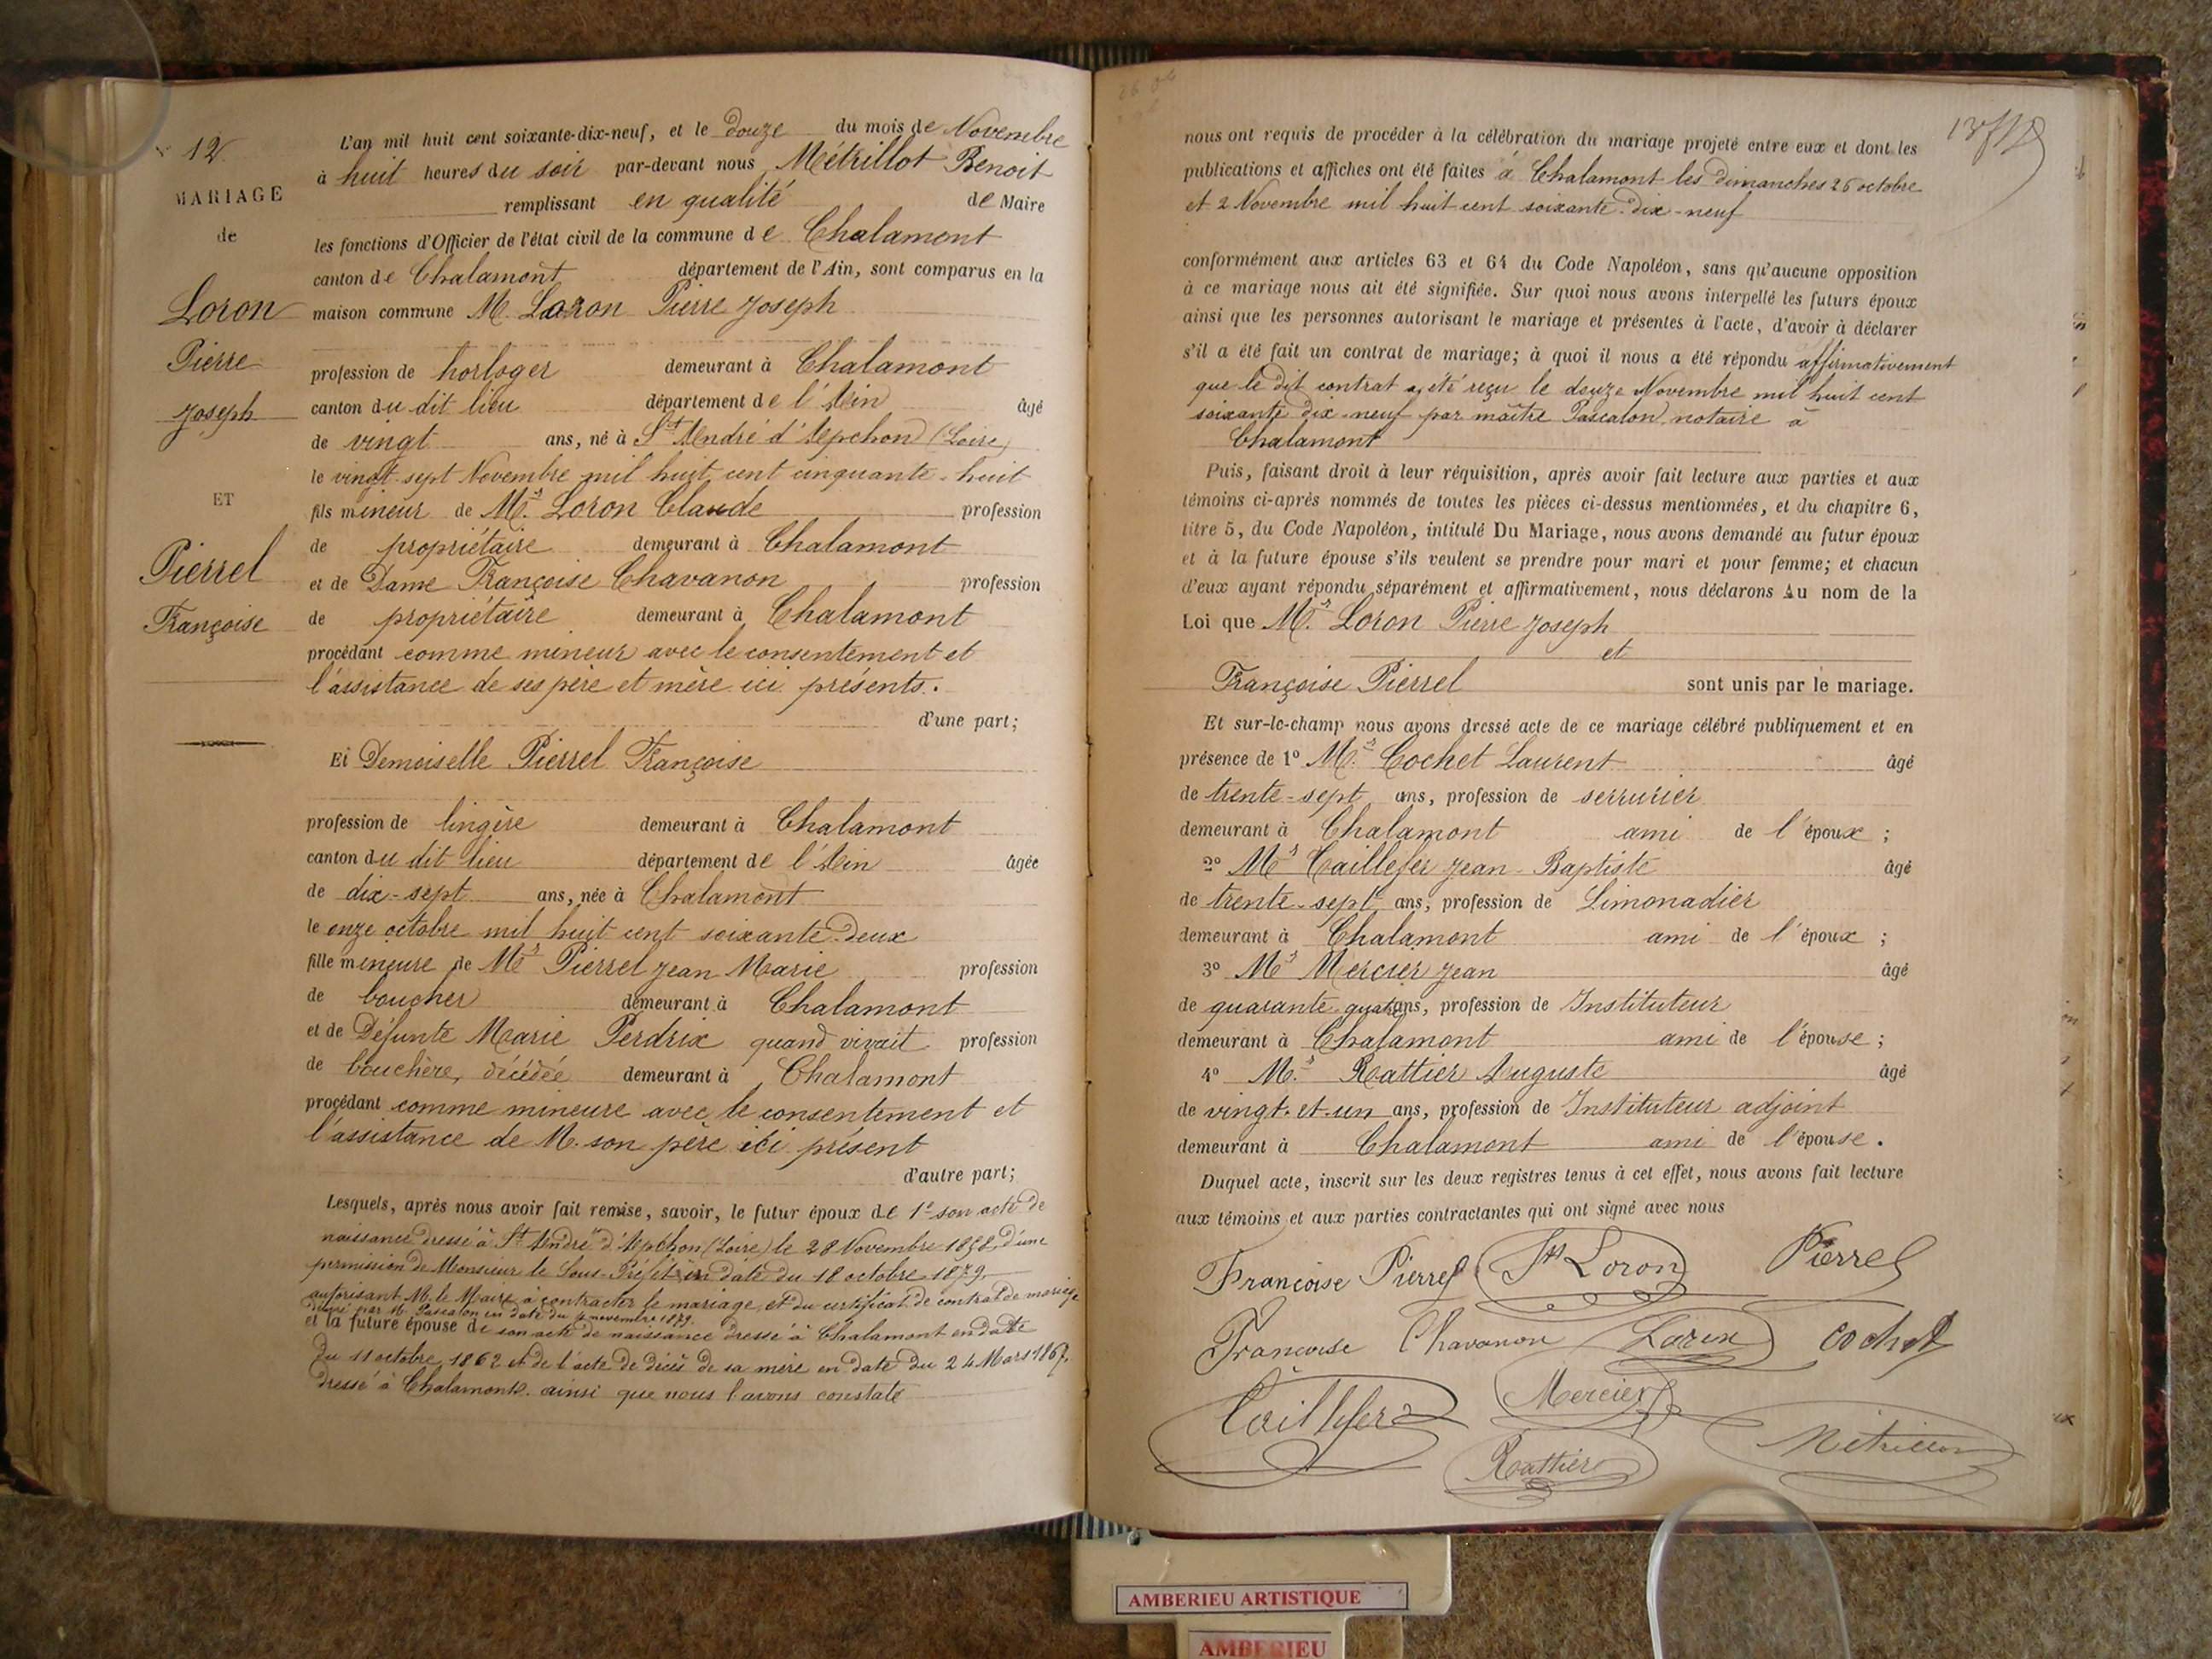 12
MARIAGE
de
Loron
Pierre
Joseph
ET
Pierrel
Françoise
L'an mil huit cent soixante-dix-neuf, et le douze du mois de Novembre
à huit heures du soir par-devant nous Métrillot Benoit
remplissant en qualité de Maire
les fonctions d'Officier de l'état civil de la commune de Chalamont
canton de Chalamont département de l'Ain, sont comparus en la
maison commune M. Loron Pierre Joseph
profession de horloger demeurant à Chalamont
canton du dit lieu département de l'Ain âgé
de vingt ans, né à St André d'Apchon (Loire)
le vingt-sept Novembre mil huit cent cinquante-huit
fils mineur de Mr Loron Claude profession
de propriétaire demeurant à Chalamont
et de Dame Françoise Chavanon profession
de propriétaire demeurant à Chalamont
procédant comme mineur avec le consentement et
l'assistance de ses père et mère ici présents.
d'une part;
Et Demoiselle Pierrel Françoise
profession de lingère demeurant à Chalamont
canton du dit lieu département de l'Ain âgée
de dix-sept ans, née à Chalamont
le onze octobre mil huit cent soixante-deux
fille mineure de Mr Pierrel Jean Marie profession
de boucher demeurant à Chalamont
et de Défunte Marie Perdrix quand vivait profession
de bouchère, décédée demeurant à Chalamont
procédant comme mineure avec le consentement et
l'assistance de M. son père ici présent
d'autre part;
Lesquels, après nous avoir fait remise, savoir, le futur époux de 1° son acte de
naissance dressé à St André d'Apchon (Loire) le 28 Novembre 1858, d'une
permission de Monsieur le Sous-Préfet en date du 18 octobre 1879
autorisant M. le Maire à contracter le mariage, et du certificat de contrat de mariage
délivré par M. Pascalon en date du novembre 1879.
et la future épouse de son acte de naissance dressé à Chalamont en date
du 11 octobre 1862 et de l'acte de décès de sa mère en date du 24 Mars 1867,
dressé à Chalamont. ainsi que nous l'avons constaté
nous ont requis de procéder à la célébration du mariage projeté entre eux et dont les
publications et affiches ont été faites à Chalamont les dimanches 26 octobre
et 2 Novembre mil huit cent soixante-dix-neuf
conformément aux articles 63 et 64 du Code Napoléon, sans qu'aucune opposition
à ce mariage nous ait été signifiée. Sur quoi nous avons interpellé les futurs époux
ainsi que les personnes autorisant le mariage et présentes à l'acte, d'avoir à déclarer
s'il a été fait un contrat de mariage; à quoi il nous a été répondu affirmativement
que le dit contrat a été reçu le douze Novembre mil huit cent
soixante dix-neuf par maître Pascalon notaire à
Chalamont
Puis, faisant droit à leur réquisition, après avoir fait lecture aux parties et aux
témoins ci-après nommés de toutes les pièces ci-dessus mentionnées, et du chapitre 6,
titre 5, du Code Napoléon, intitulé Du Mariage, nous avons demandé au futur époux
et à la future épouse s'ils veulent se prendre pour mari et pour femme; et chacun
d'eux ayant répondu séparément et affirmativement, nous déclarons Au nom de la
Loi que Mr Loron Pierre Joseph
et
Françoise Pierrel sont unis par le mariage.
Et sur-le-champ nous avons dressé acte de ce mariage célébré publiquement et en
présence de 1° Mr Cochet Laurent âgé
de trente-sept ans, profession de serrurier
demeurant à Chalamont ami de l'époux ;
2° Mr Taillefer Jean-Baptiste âgé
de trente-sept ans, profession de Limonadier
demeurant à Chalamont ami de l'époux ;
3° Mr Mercier Jean âgé
de quarante-quatre ans, profession de Instituteur
demeurant à Chalamont ami de l'épouse ;
4° Mr Rattier Auguste âgé
de vingt-et-un ans, profession de Instituteur adjoint
demeurant à Chalamont ami de l'épouse.
Duquel acte, inscrit sur les deux registres tenus à cet effet, nous avons fait lecture
aux témoins et aux parties contractantes qui ont signé avec nous
Françoise Pierrel Loron Pierrel
Francoise Chavanon Loron Cochet
Taillefer Mercier
Rattier
AMBERIEU ARTISTIQUE
AMBERIEU